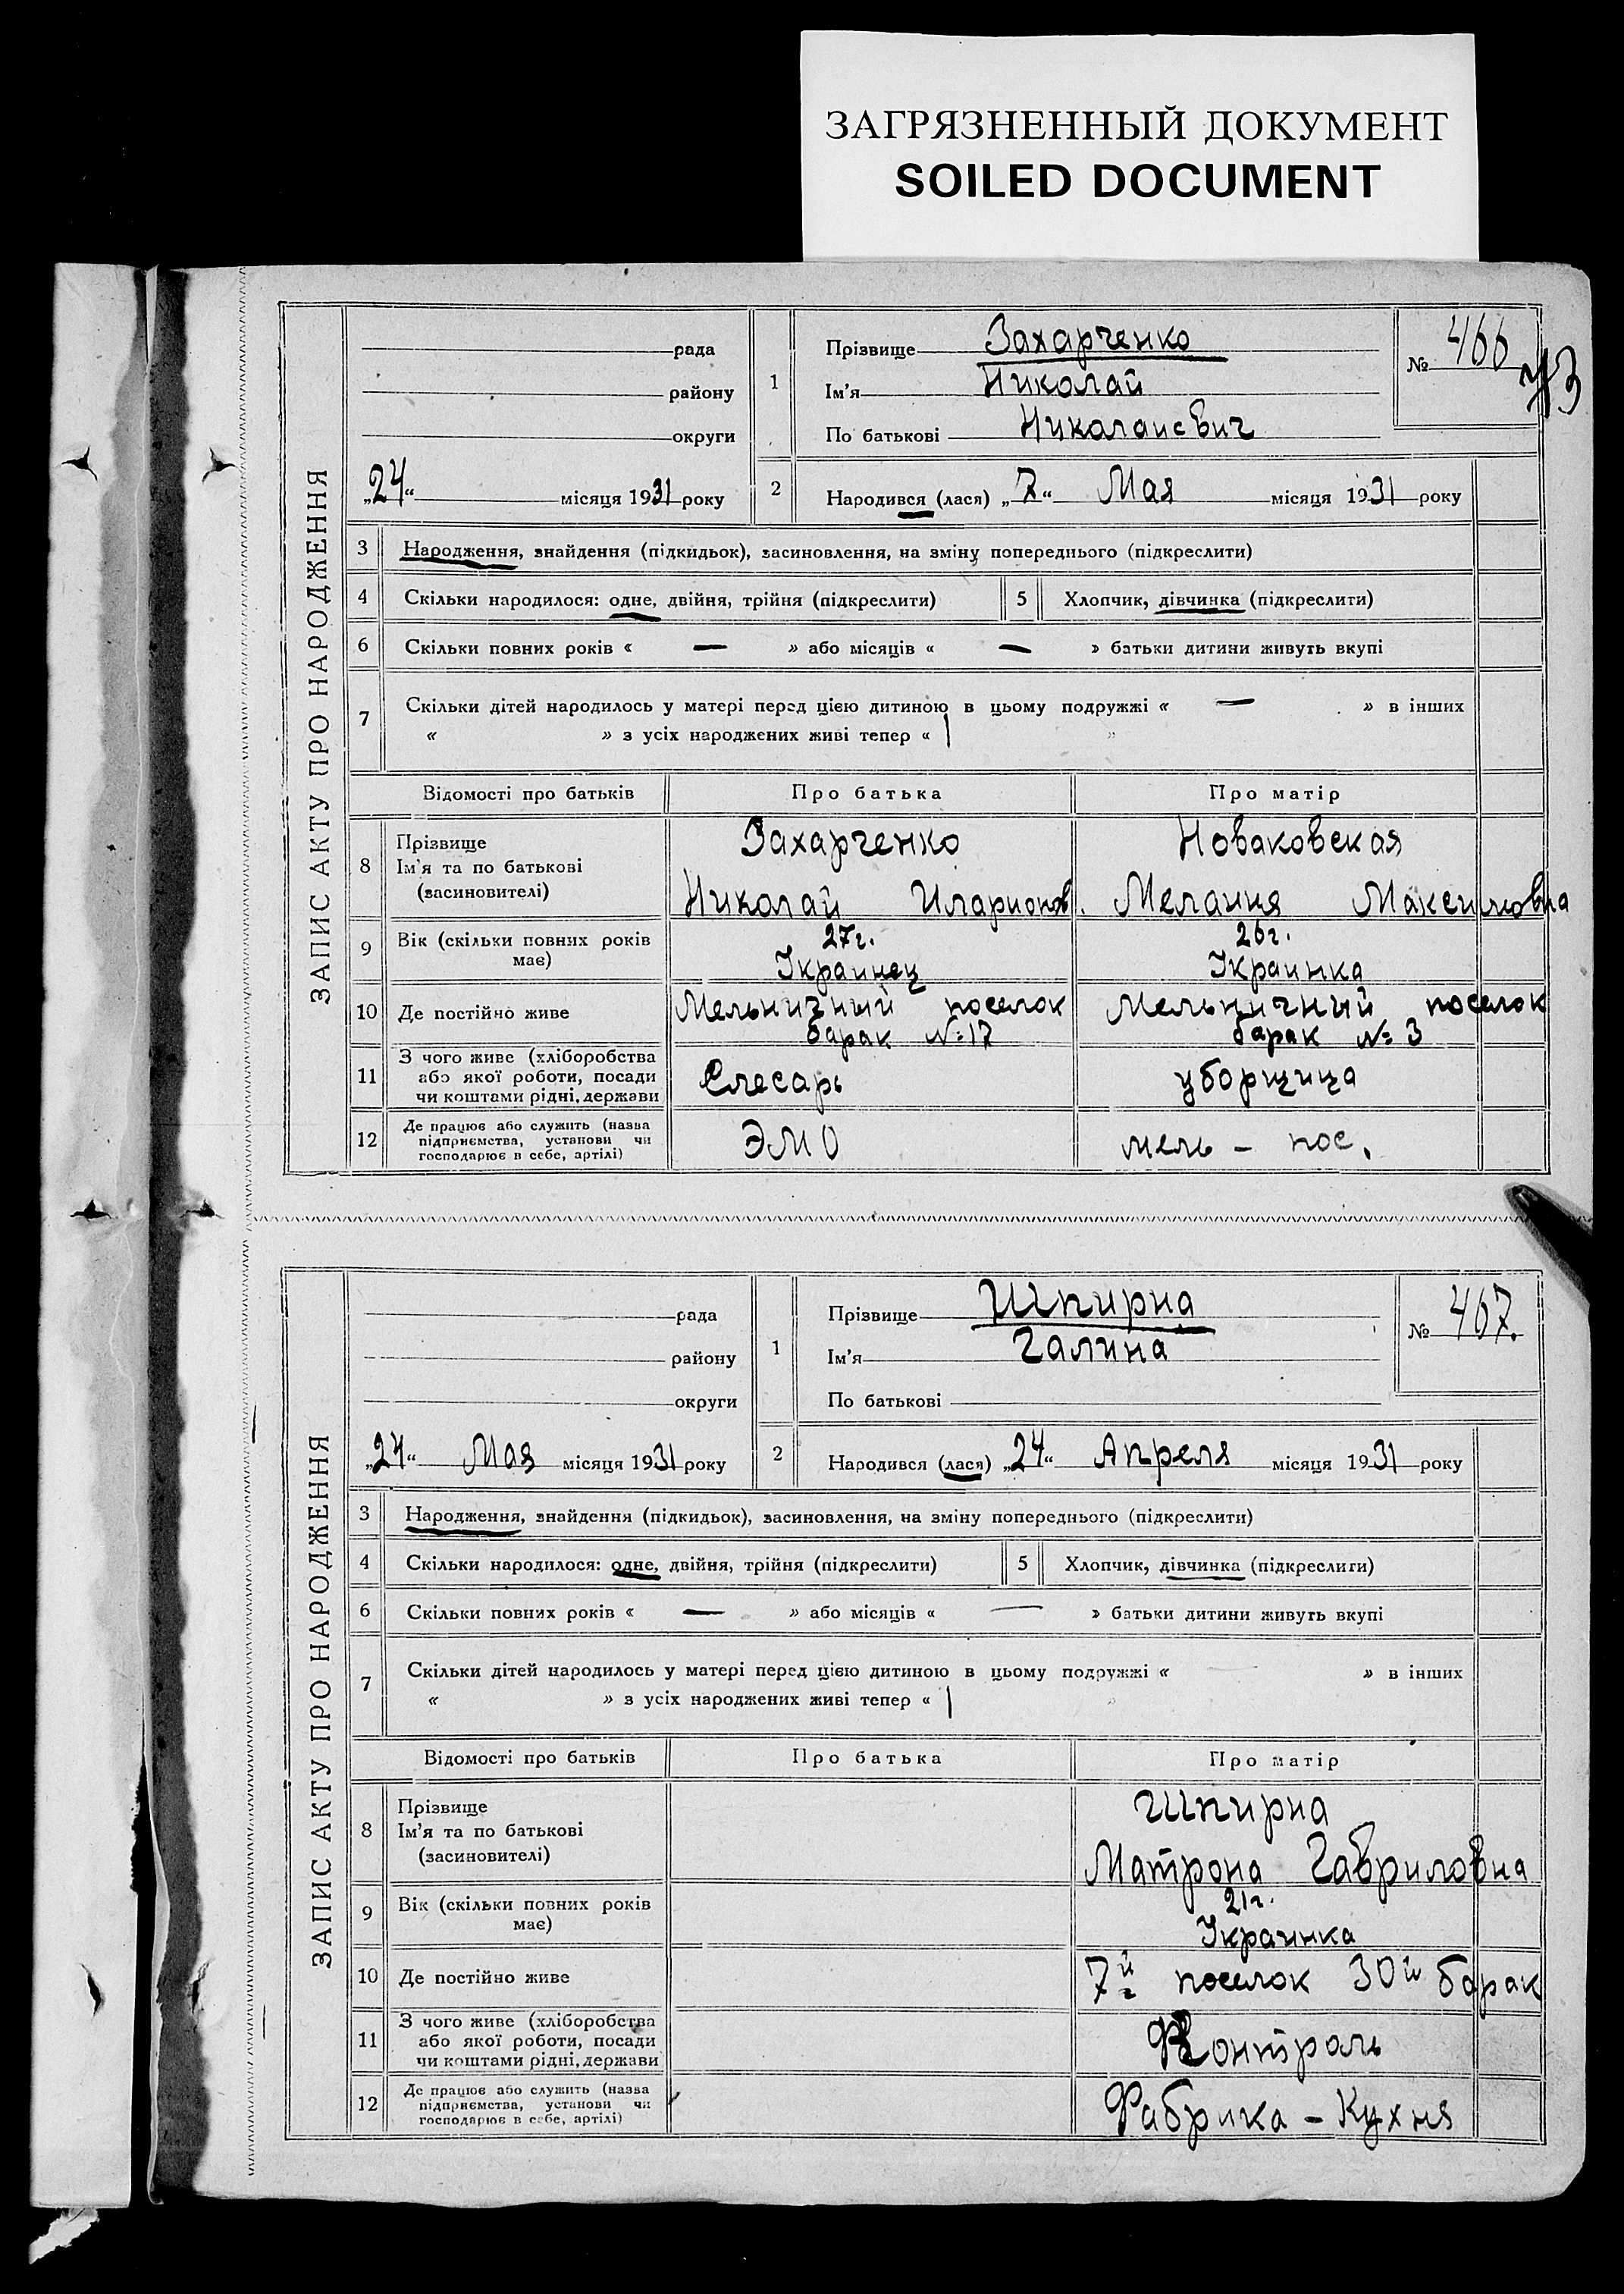 ЗАГРЯЗНЕННЫЙ ДОКУМЕНТ
SOILED DOCUMENT
ЗАПИС АКТУ ПРО НАРОДЖЕННЯ
рада
району
округи
„24“ місяця 1931 року
1
Прізвище Захарченко
Ім'я Николай
По батькові Николаиевич
№ 466
73
2 Народився (лася) „7“ Мая місяця 1931 року
3 Народження, знайдення (підкидьок), засиновлення, на зміну попереднього (підкреслити)
4 Скільки народилося: одне, двійня, трійня (підкреслити) 5 Хлопчик, дівчинка (підкреслити)
6 Скільки повних років « — » або місяців « — » батьки дитини живуть вкупі
7 Скільки дітей народилось у матері перед цією дитиною в цьому подружжі « — » в інших
« » з усіх народжених живі тепер « 1 »
Відомості про батьків Про батька Про матір
8 Прізвище
Ім'я та по батькові
(засиновителі)
Захарченко
Николай Иларионов.
Новаковская
Мелания Максимовна
9 Вік (скільки повних років
має)
27г.
Украинец
26г.
Украинка
10 Де постійно живе
Мельничный поселок
барак № 17
Мельничный поселок
барак № 3
11 З чого живе (хліборобства
або якої роботи, посади
чи коштами рідні, держави
Слесарь
уборщица
12 Де працює або служить (назва
підприємства, установи чи
господарює в себе, артілі)
ЭМО
мель – пос.
ЗАПИС АКТУ ПРО НАРОДЖЕННЯ
рада
району
округи
„24“ Мая місяця 1931 року
1
Прізвище Шпирна
Ім'я Галина
По батькові
№ 467.
2 Народився (лася) „24“ Апреля місяця 1931 року
3 Народження, знайдення (підкидьок), засиновлення, на зміну попереднього (підкреслити)
4 Скільки народилося: одне, двійня, трійня (підкреслити) 5 Хлопчик, дівчинка (підкреслити)
6 Скільки повних років « — » або місяців « — » батьки дитини живуть вкупі
7 Скільки дітей народилось у матері перед цією дитиною в цьому подружжі « — » в інших
« » з усіх народжених живі тепер « 1 »
Відомості про батьків Про батька Про матір
8 Прізвище
Ім'я та по батькові
(засиновителі)
Шпирна
Матрона Гавриловна
9 Вік (скільки повних років
має)
21г.
Украинка
10 Де постійно живе
7й поселок 30й барак
11 З чого живе (хліборобства
або якої роботи, посади
чи коштами рідні, держави
Контроль
12 Де працює або служить (назва
підприємства, установи чи
господарює в себе, артілі)
Фабрика – Кухня